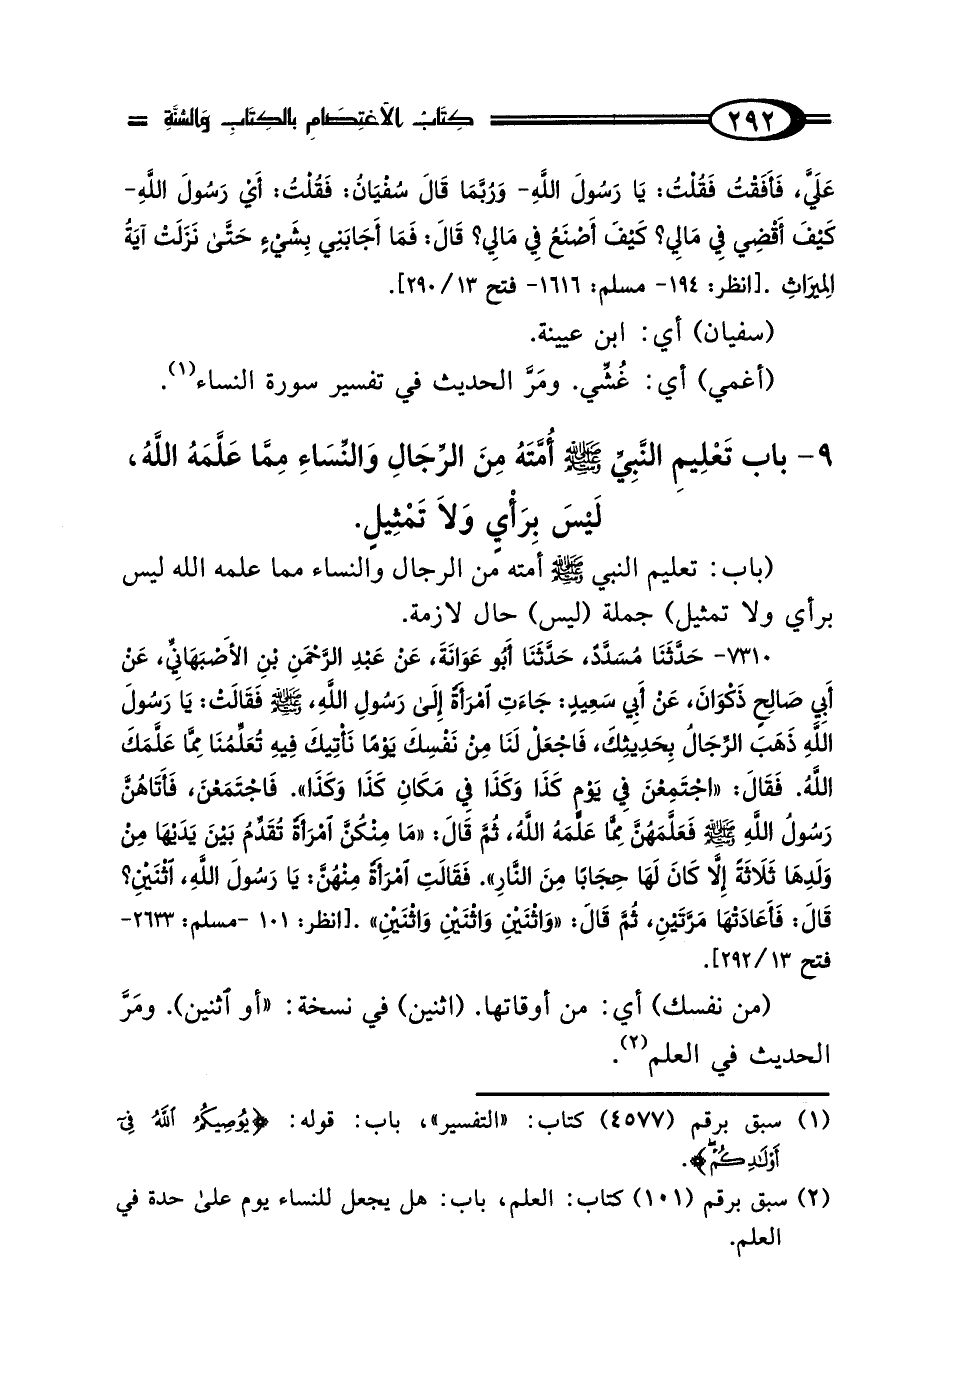 ٢٩٢ كِتَابُ الاعْتِصَامِ بِالكِتَابِ وَالسُّنَّةِ =
عَلَيَّ، فَأَفَقْتُ فَقُلْتُ: يَا رَسُولَ اللَّهِ- وَرُبَّمَا قَالَ سُفْيَانُ: فَقُلْتُ: أَيْ رَسُولَ اللَّهِ-
كَيْفَ أَقْضِي فِي مَالِي؟ كَيْفَ أَصْنَعُ فِي مَالِي؟ قَالَ: فَمَا أَجَابَنِي بِشَيْءٍ حَتَّىٰ نَزَلَتْ آيَةُ
المِيرَاثِ .[انظر: ١٩٤- مسلم: ١٦١٦- فتح ١٣/ ٢٩٠].
(سفيان) أي: ابن عيينة.
(أغمي) أي: غُشِّي. ومَرَّ الحديث في تفسير سورة النساء(١).
٩- باب تَعْلِيمِ النَّبِيِّ ﷺ أُمَّتَهُ مِنَ الرِّجَالِ وَالنِّسَاءِ مِمَّا عَلَّمَهُ اللَّهُ،
لَيْسَ بِرَأْيٍ وَلاَ تَمْثِيلٍ.
(باب: تعليم النبي ﷺ أمته من الرجال والنساء مما علمه الله ليس
برأي ولا تمثيل) جملة (ليس) حال لازمة.
٧٣١٠- حَدَّثَنَا مُسَدَّدٌ، حَدَّثَنَا أَبُو عَوَانَةَ، عَنْ عَبْدِ الرَّحْمَنِ بْنِ الأَصْبَهَانِيِّ، عَنْ
أَبِي صَالِحٍ ذَكْوَانَ، عَنْ أَبِي سَعِيدٍ: جَاءَتِ ٱمْرَأَةٌ إِلَىٰ رَسُولِ اللَّهِ، ﷺ فَقَالَتْ: يَا رَسُولَ
اللَّهِ ذَهَبَ الرِّجَالُ بِحَدِيثِكَ، فَاجْعَلْ لَنَا مِنْ نَفْسِكَ يَوْمًا نَأْتِيكَ فِيهِ تُعَلِّمُنَا مِمَّا عَلَّمَكَ
اللَّهُ. فَقَالَ: «اجْتَمِعْنَ فِي يَوْمِ كَذَا وَكَذَا فِي مَكَانِ كَذَا وَكَذَا». فَاجْتَمَعْنَ، فَأَتَاهُنَّ
رَسُولُ اللَّهِ ﷺ فَعَلَّمَهُنَّ مِمَّا عَلَّمَهُ اللَّهُ، ثُمَّ قَالَ: «مَا مِنْكُنَّ ٱمْرَأَةٌ تُقَدِّمُ بَيْنَ يَدَيْهَا مِنْ
وَلَدِهَا ثَلَاثَةً إِلَّا كَانَ لَهَا حِجَابًا مِنَ النَّارِ». فَقَالَتِ ٱمْرَأَةٌ مِنْهُنَّ: يَا رَسُولَ اللَّهِ، ٱثْنَيْنِ؟
قَالَ: فَأَعَادَتْهَا مَرَّتَيْنِ، ثُمَّ قَالَ: «وَاثْنَيْنِ وَاثْنَيْنِ وَاثْنَيْنِ» .[انظر: ١٠١ -مسلم: ٢٦٣٣-
فتح ١٣/ ٢٩٢].
(من نفسك) أي: من أوقاتها. (اثنين) في نسخة: «أو ٱثنين». ومَرَّ
الحديث في العلم(٢).
(١) سبق برقم (٤٥٧٧) كتاب: «التفسير»، باب: قوله: ﴿يُوصِيكُمُ ٱللَّهُ فِىٓ
أَوْلَٰدِكُمْۖ﴾.
(٢) سبق برقم (١٠١) كتاب: العلم، باب: هل يجعل للنساء يوم علىٰ حدة في
العلم.